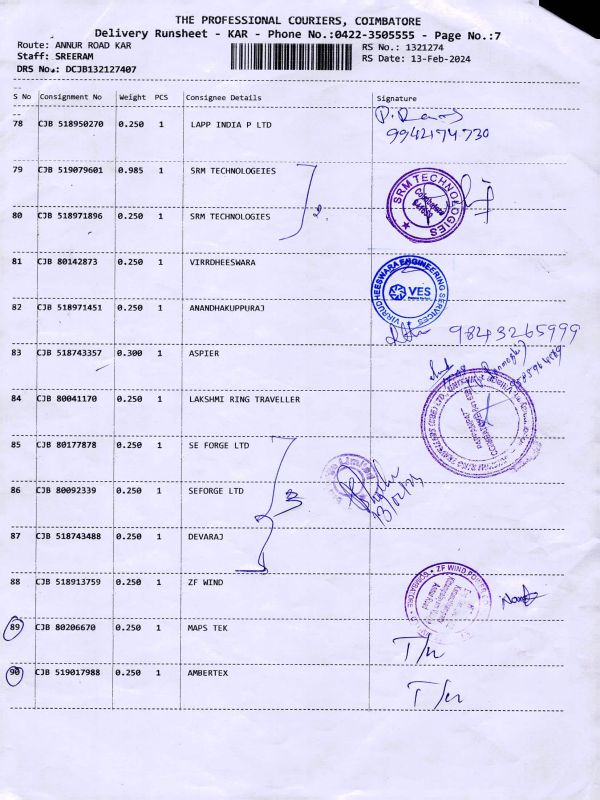 THE PROFESSIONAL COURIERS, COIMBATORE
Delivery Runsheet - KAR - Phone No.:0422-3505555 - Page No.:7
Route: ANNUR ROAD KAR RS No.: 1321274
Staff: SREERAM RS Date: 13-Feb-2024
DRS No.: DCJB132127407
S No Consignment No Weight PCS Consignee Details Signature
78 CJB 518950270 0.250 1 LAPP INDIA P LTD
9942174730
79 CJB 519079601 0.985 1 SRM TECHNOLOGEIES
SRM TECHNOLOGIES
80 CJB 518971896 0.250 1 SRM TECHNOLOGIES
81 CJB 80142873 0.250 1 VIRRDHEESWARA
VIRUDHEESWARA ENGINEERING SERVICES
VES
82 CJB 518971451 0.250 1 ANANDHAKUPPURAJ
9843265999
83 CJB 518743357 0.300 1 ASPIER
84 CJB 80041170 0.250 1 LAKSHMI RING TRAVELLER
85 CJB 80177878 0.250 1 SE FORGE LTD
Limited
86 CJB 80092339 0.250 1 SEFORGE LTD
3
13/02/24
87 CJB 518743488 0.250 1 DEVARAJ
88 CJB 518913759 0.250 1 ZF WIND
ZF WIND POWER
COIMBATORE
89 CJB 80206670 0.250 1 MAPS TEK
T/n
90 CJB 519017988 0.250 1 AMBERTEX
T/n